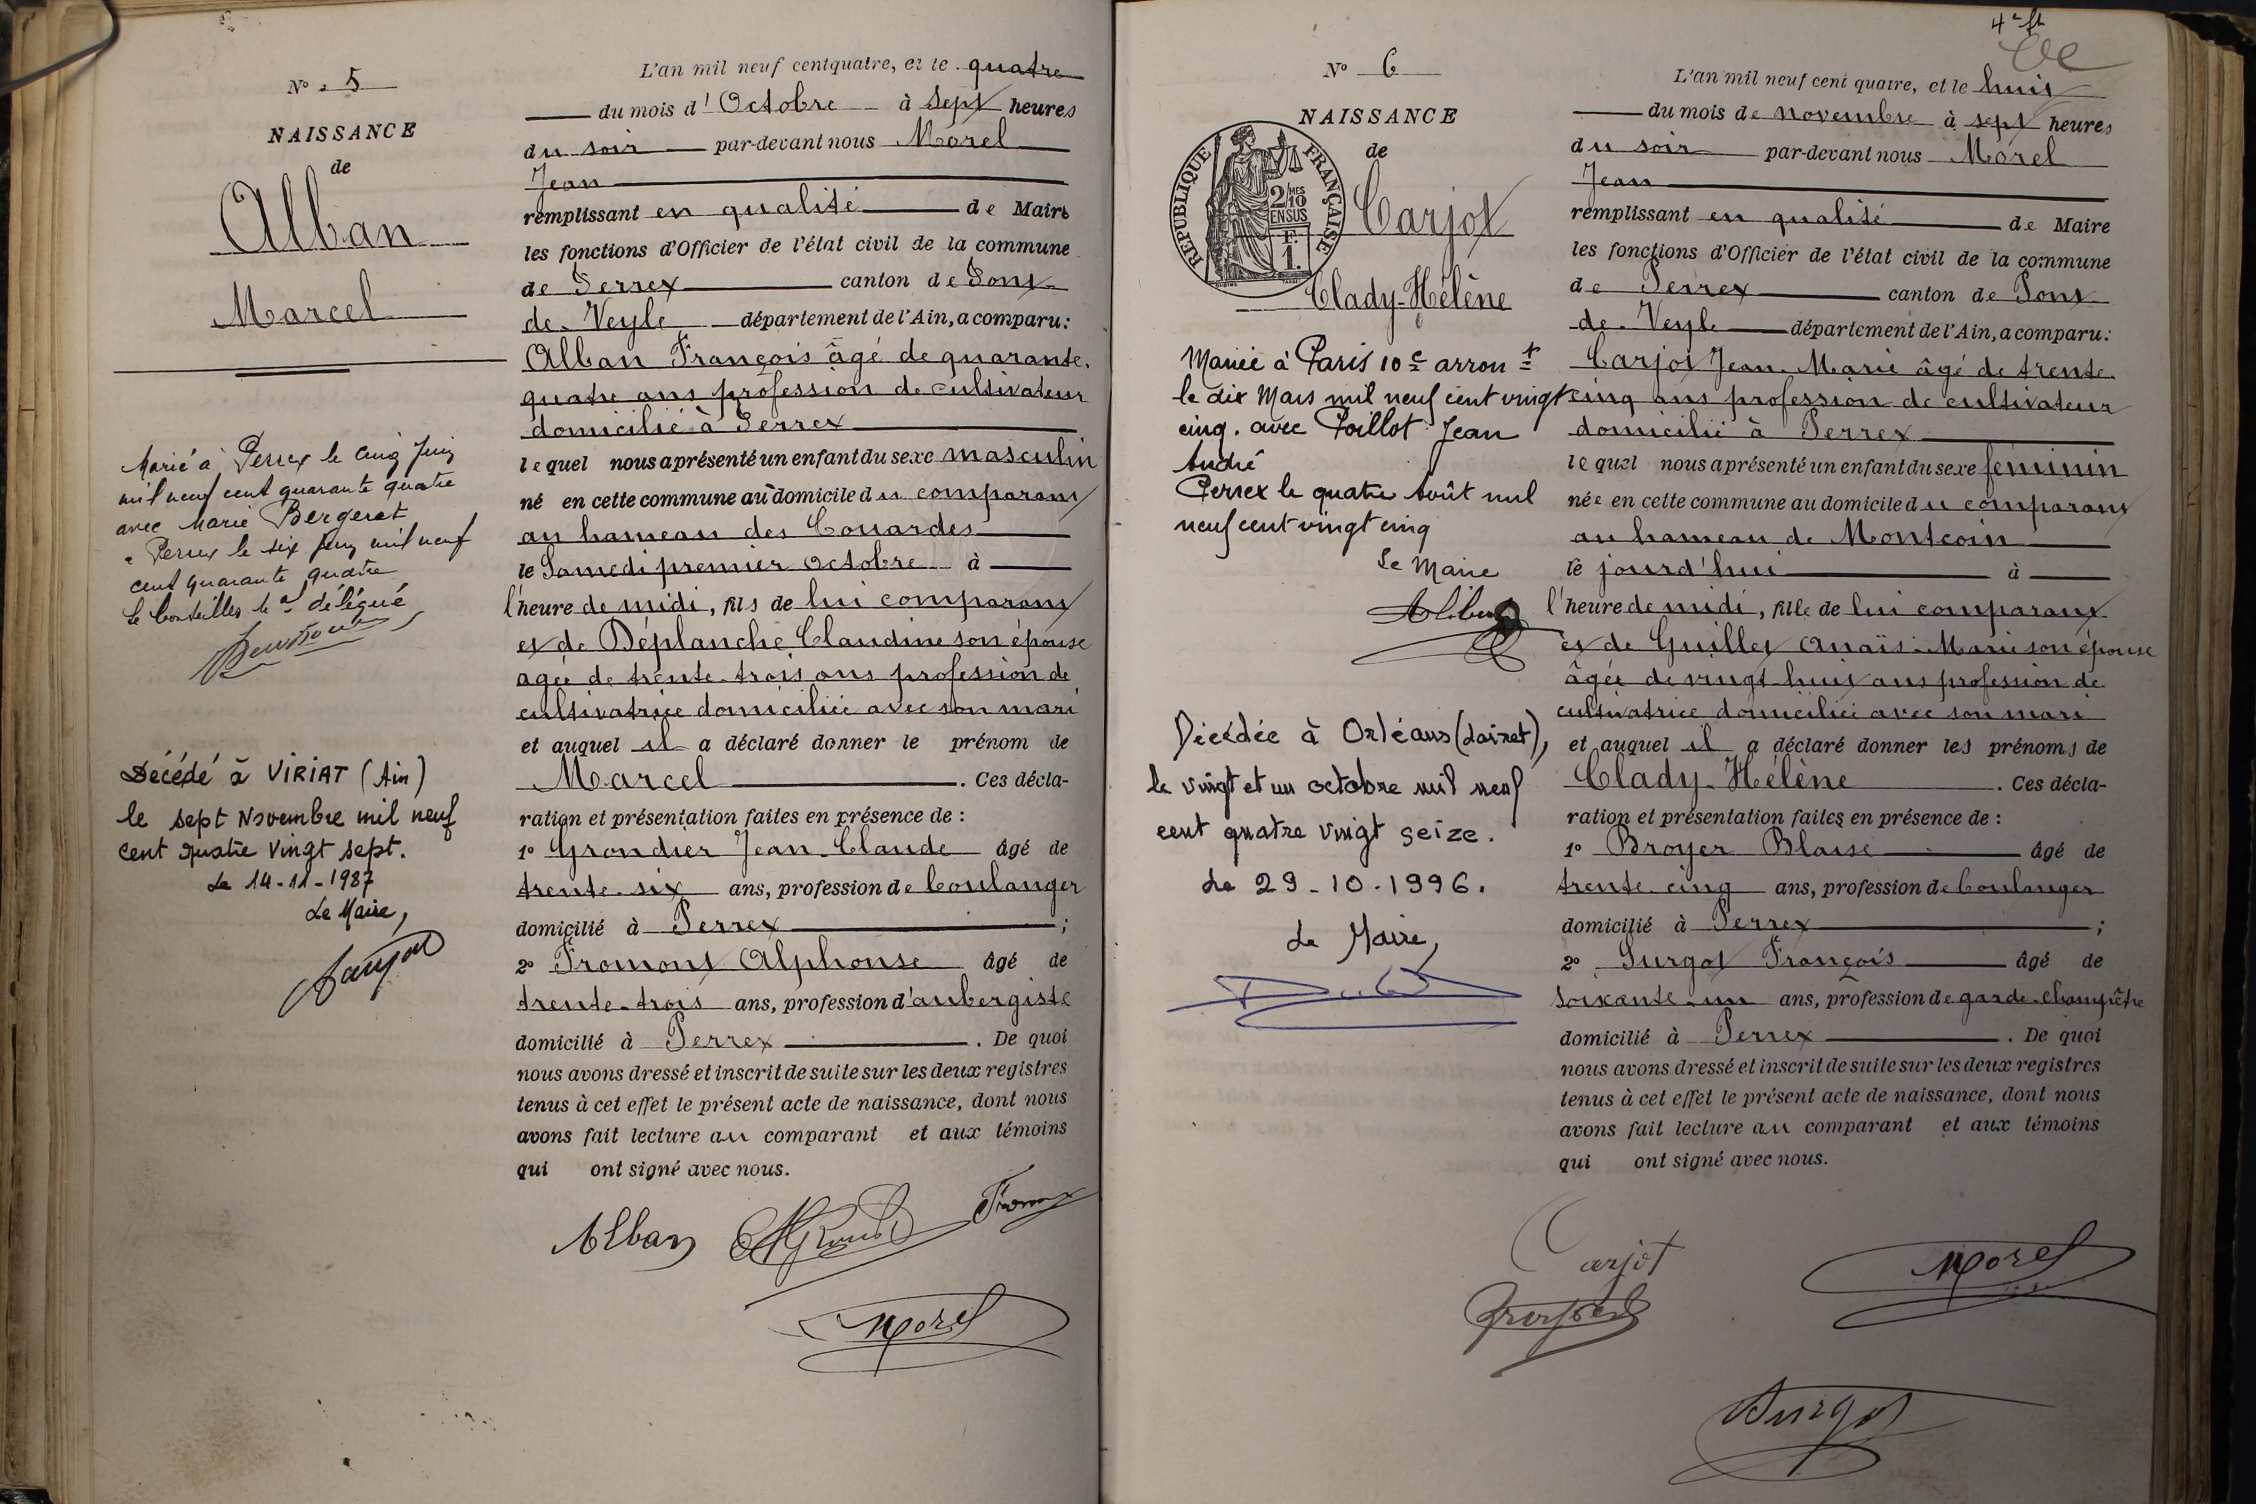 N° 5
NAISSANCE
de
Alban
Marcel
Marié à Perrex le cinq Juin
mil neuf cent quarante quatre
avec Marie Bergeret
Perrex le six Juin mil neuf
cent quarante quatre
Le Conseiller Mal délégué
Décédé à VIRIAT (Ain)
le sept Novembre mil neuf
cent quatre vingt sept.
Le 14-11-1987
Le Maire,
L'an mil neuf cent quatre, et le quatre
du mois d'Octobre à sept heures
du soir par-devant nous Morel
Jean
remplissant en qualité de Maire
les fonctions d'Officier de l'état civil de la commune
de Perrex canton de Pont
de Veyle département de l'Ain, a comparu:
Alban François âgé de quarante.
quatre ans profession de cultivateur
domicilié à Perrex
lequel nous a présenté un enfant du sexe masculin
né en cette commune au domicile du comparant
au hameau des Couardes
le Samedi premier Octobre à
l'heure de midi, fils de lui comparant
et de Déplanche Claudine son épouse
agée de trente-trois ans profession de
cultivatrice domiciliée avec son mari
et auquel il a déclaré donner le prénom de
Marcel. Ces décla-
ration et présentation faites en présence de :
1° Grondier Jean-Claude âgé de
trente-six ans, profession de boulanger
domicilié à Perrex ;
2° Fromont Alphonse âgé de
trente-trois ans, profession d'aubergiste
domicilié à Perrex. De quoi
nous avons dressé et inscrit de suite sur les deux registres
tenus à cet effet le présent acte de naissance, dont nous
avons fait lecture au comparant et aux témoins
qui ont signé avec nous.
Alban
Morel
N° 6
NAISSANCE
de
REPUBLIQUE FRANÇAISE
2/10 MES
EN SUS
F.
1.
Carjot
Clady-Hélène
Mariée à Paris 10e arront
le dix Mars mil neuf cent vingt
cinq. avec Poillot Jean
André
Perrex le quatre Août mil
neuf cent vingt cinq
Le Maire
Décédée à Orléans (Loiret),
le vingt et un octobre mil neuf
cent quatre vingt seize.
Le 29-10-1996.
Le Maire,
L'an mil neuf cent quatre, et le huit
du mois de novembre à sept heures
du soir par-devant nous Morel
Jean
remplissant en qualité de Maire
les fonctions d'Officier de l'état civil de la commune
de Perrex canton de Pont
de Veyle département de l'Ain, a comparu:
Carjot Jean-Marie âgé de trente
cinq ans profession de cultivateur
domicilié à Perrex
lequel nous a présenté un enfant du sexe féminin
née en cette commune au domicile du comparant
au hameau de Montcoin
le jourd'hui à
l'heure de midi, fille de lui comparant
et de Guillet Anaïs-Marie son épouse
âgée de vingt huit ans profession de
cultivatrice domiciliée avec son mari
et auquel il a déclaré donner les prénoms de
Clady-Hélène. Ces décla-
ration et présentation faites en présence de :
1° Broyer Blaise âgé de
trente-cinq ans, profession de boulanger
domicilié à Perrex ;
2° Surgot François âgé de
soixante-un ans, profession de garde-champêtre
domicilié à Perrex. De quoi
nous avons dressé et inscrit de suite sur les deux registres
tenus à cet effet le présent acte de naissance, dont nous
avons fait lecture au comparant et aux témoins
qui ont signé avec nous.
Carjot
Morel